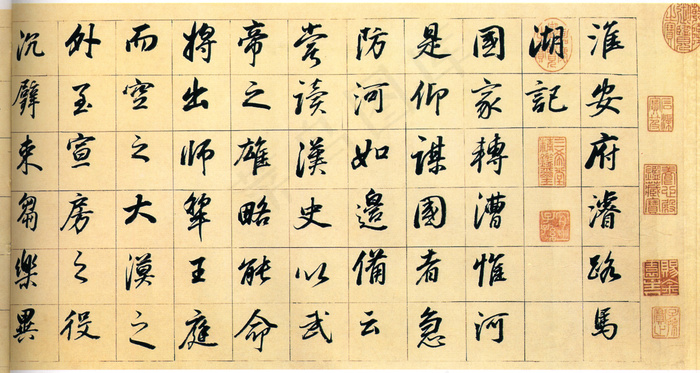 淮安府濬路馬
湖記
國家轉漕惟河
是仰謀國者急
防河如邊備云
嘗讀漢史以武
帝之雄略能命
將出師犂王庭
而空之大漠之
外至宣房之役
沉璧束芻樂異